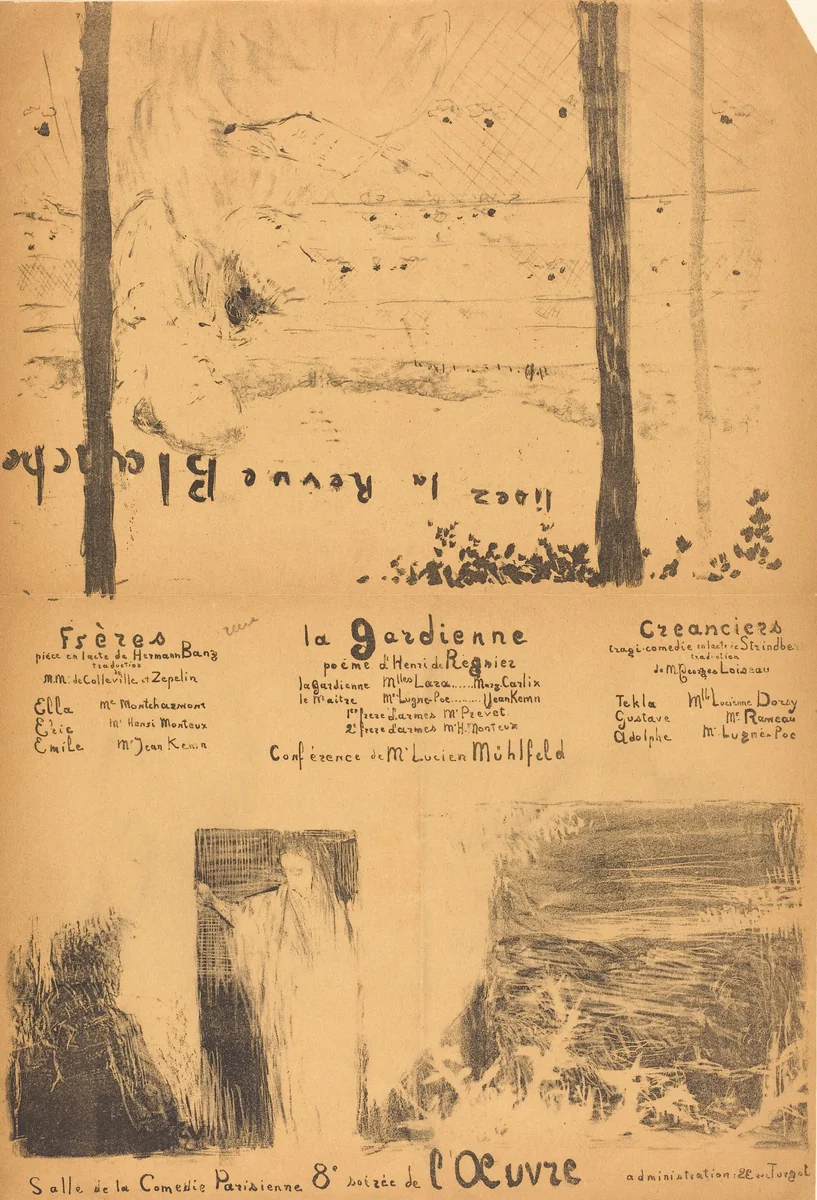 lisez la Revue Blanche
Frères
pièce en 1 acte de Hermann Bang
traduction
de
M.M. de Colleville et Zepelin
Ella Me Montcharmont
Eric Mr Henri Monteux
Emile Mr Jean Kemm
la gardienne
poème d'Henri de Régnier
la gardienne Mlles Lara......Marg. Carlix
le Maitre Mr Lugné-Poe.........Jean Kemm
1er frere d'armes Mr Prevet
2e frere d'armes Mr H. Monteux
Conférence de Mr Lucien Mühlfeld
Creanciers
tragi-comedie en 1 acte de Strindberg
traduction
de M. Georges Loiseau
Tekla Mlle Lucienne Dorsy
Gustave Mr Rameau
Adolphe Mr Lugné-Poe
Salle de la Comedie Parisienne 8e soirée de l'Œuvre
administration: 22 rue Turgot